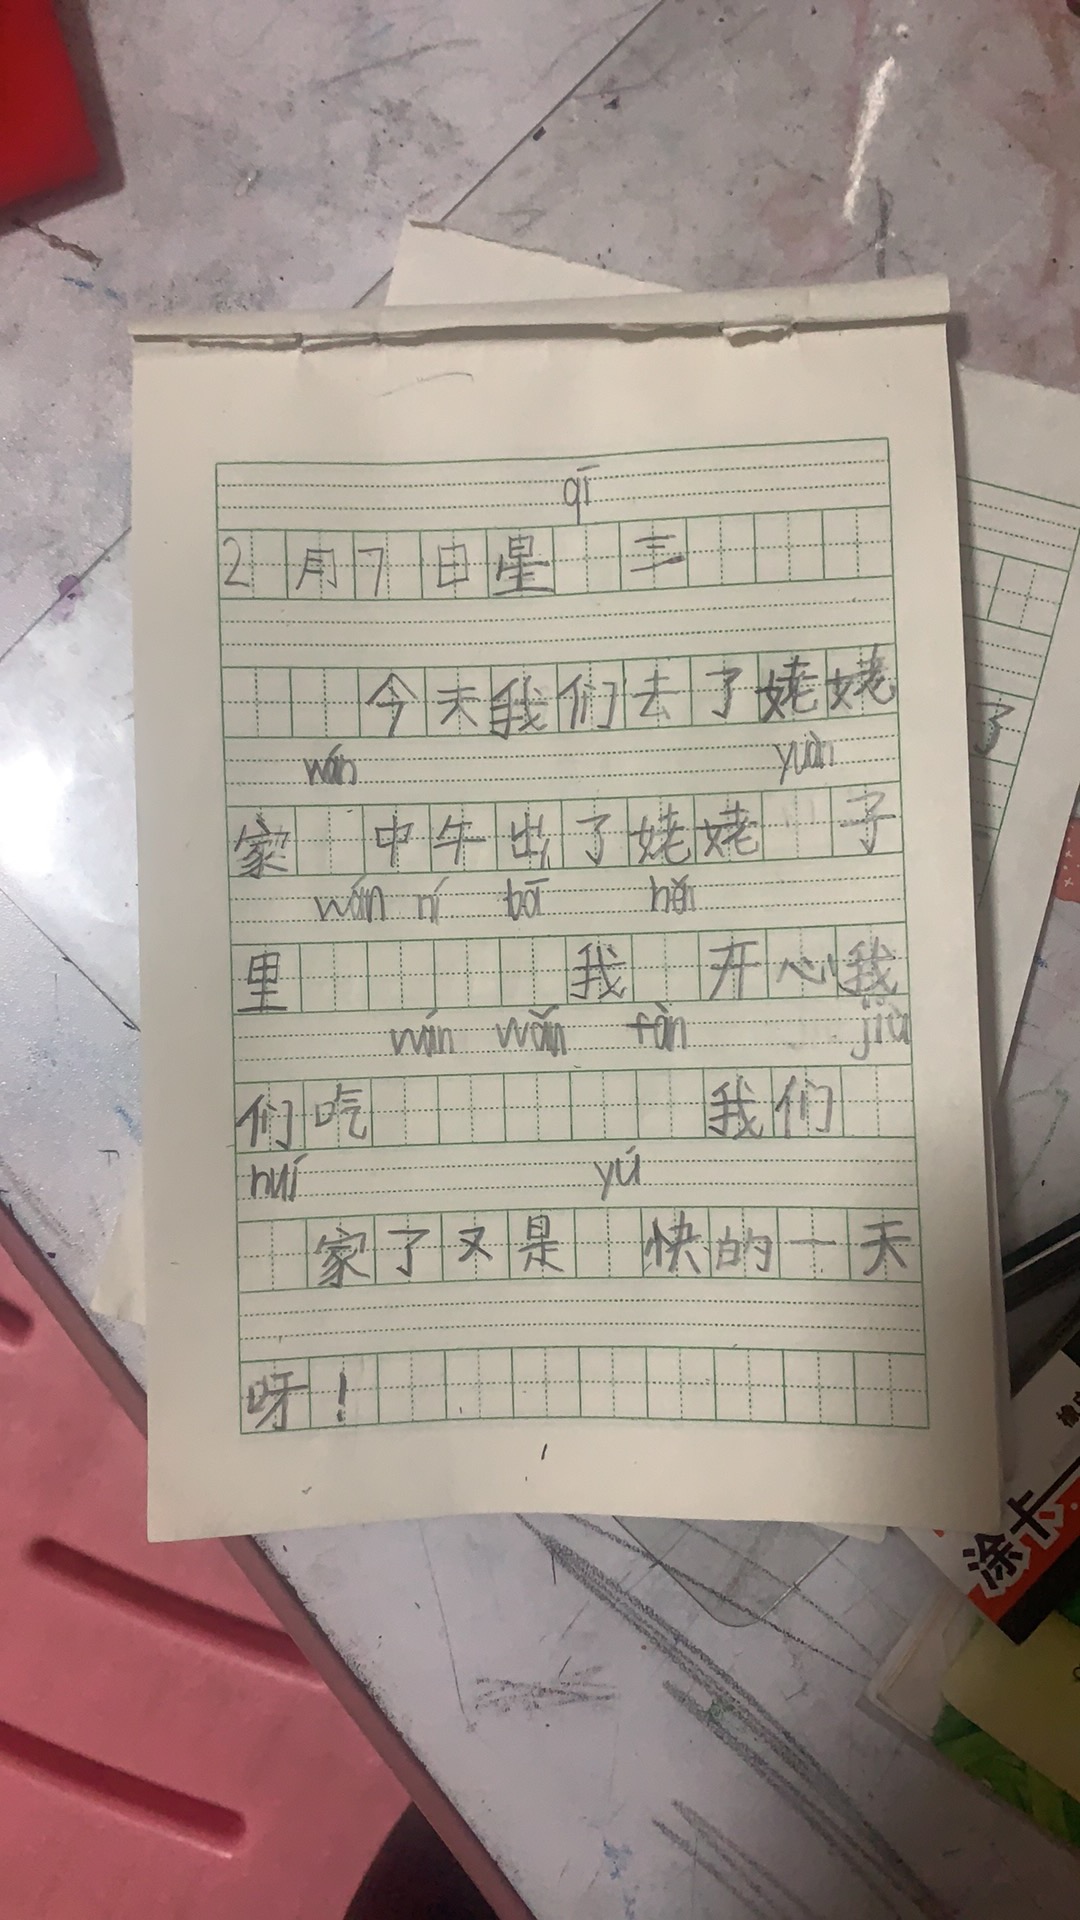 qī
2月7日星 三
今天我们去了姥姥
wán yuàn
家 中午出了姥姥 子
wán ní bā hěn
里 我 开心我
wán wǎn fàn jiù
们吃 我们
huí yú
家了又是 快的一天
呀！
了
涂卡